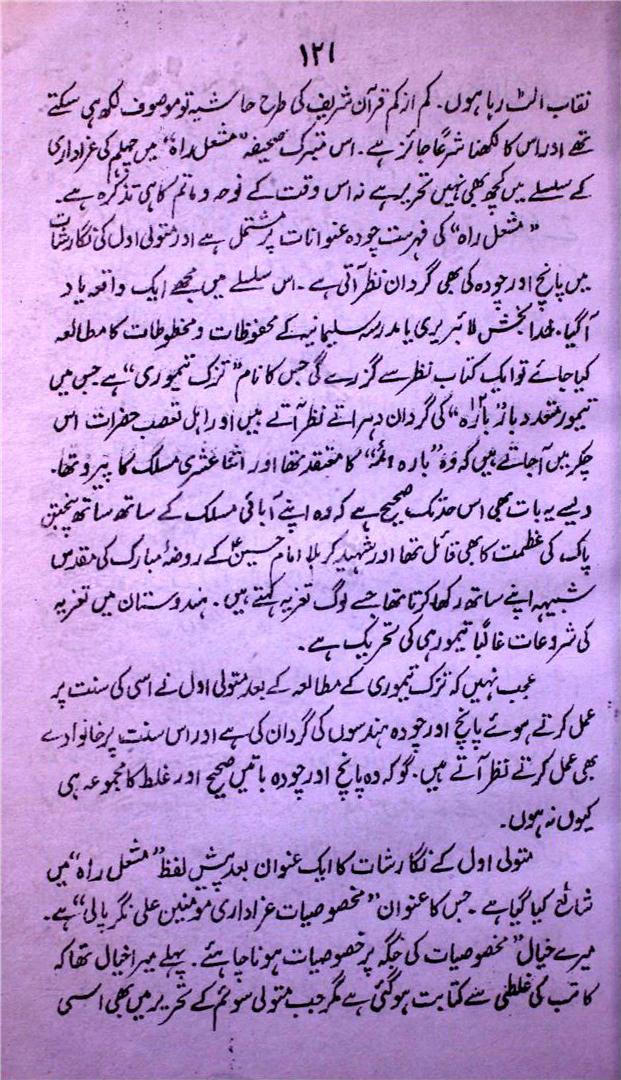 ۱۲۱
نقاب الٹ رہا ہوں۔ کم از کم قرآن شریف کی طرح حاشیہ تو موصوف لکھ ہی سکتے
تھے اور اس کا لکھنا شرعًا جائز ہے۔ اس متبرک صحیفہ "مشعل راہ" میں چہلم کی عزاداری
کے سلسلے میں کچھ بھی نہیں تحریر ہے نہ اس وقت کے نوحہ و ماتم کا ہی تذکرہ ہے۔
"مشعل راہ" کی فہرست چودہ عنوانات پر مشتمل ہے اور متولی اول کی نگارشات
میں پانچ اور چودہ کی بھی گردان نظر آتی ہے۔ اس سلسلے میں مجھے ایک واقعہ یاد
آگیا۔ خدا بخش لائبریری یا مدرسہ سلیمانیہ کے محفوظات و مخطوطات کا مطالعہ
کیا جائے تو ایک کتاب نظر سے گزرے گی جس کا نام "تزک تیموری" ہے جس میں
تیمور متعدد بار "بارہ" کی گردان دہراتے نظر آتے ہیں اور اہل تعصب حضرات اس
چکر میں آجاتے ہیں کہ وہ "بارہ ائمہ" کا معتقد تھا اور اثنا عشری مسلک کا پیرو تھا۔
ویسے یہ بات بھی اس حد تک صحیح ہے کہ وہ اپنے آبائی مسلک کے ساتھ ساتھ پنجتن
پاک کی عظمت کا بھی قائل تھا اور شہید کربلا امام حسینؑ کے روضۂ مبارک کی مقدس
شبیہہ اپنے ساتھ رکھا کرتا تھا جسے لوگ تعزیہ کہتے ہیں۔ ہندوستان میں تعزیہ
کی شروعات غالبًا تیموری کی تحریک ہے۔
عجب نہیں کہ تزک تیموری کے مطالعہ کے بعد متولی اول نے اسی کی سنت پر
عمل کرتے ہوئے پانچ اور چودہ ہندسوں کی گردان کی ہے اور اس سنت پر خانوادے
بھی عمل کرتے نظر آتے ہیں۔ گو کہ وہ پانچ اور چودہ باتیں صحیح اور غلط کا مجموعہ ہی
کیوں نہ ہوں۔
متولی اول کے نگارشات کا ایک عنوان بعد پیش لفظ "مشعل راہ" میں
شائع کیا گیا ہے۔ جس کا عنوان "مخصوصیات عزاداری مومنین علی نگر پالی" ہے۔
میرے خیال "مخصوصیات کی جگہ پر خصوصیات ہونا چاہئے۔ پہلے میرا خیال تھا کہ
کاتب کی غلطی سے کتابت ہوگئی ہے مگر جب متولی سوئم کے تحریر میں بھی اسی